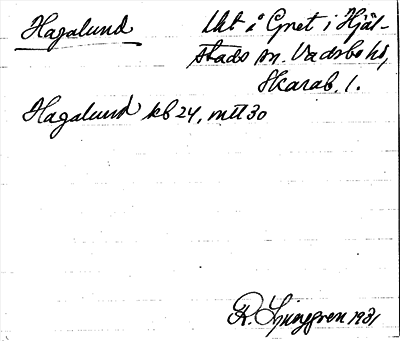 Hagalund Ut å Gnet i Hjäl-
stads sn. Vadsbo hd,
Skarab. l.
Hagalund kb 24, mtl 30
R. Ljunggren 1931